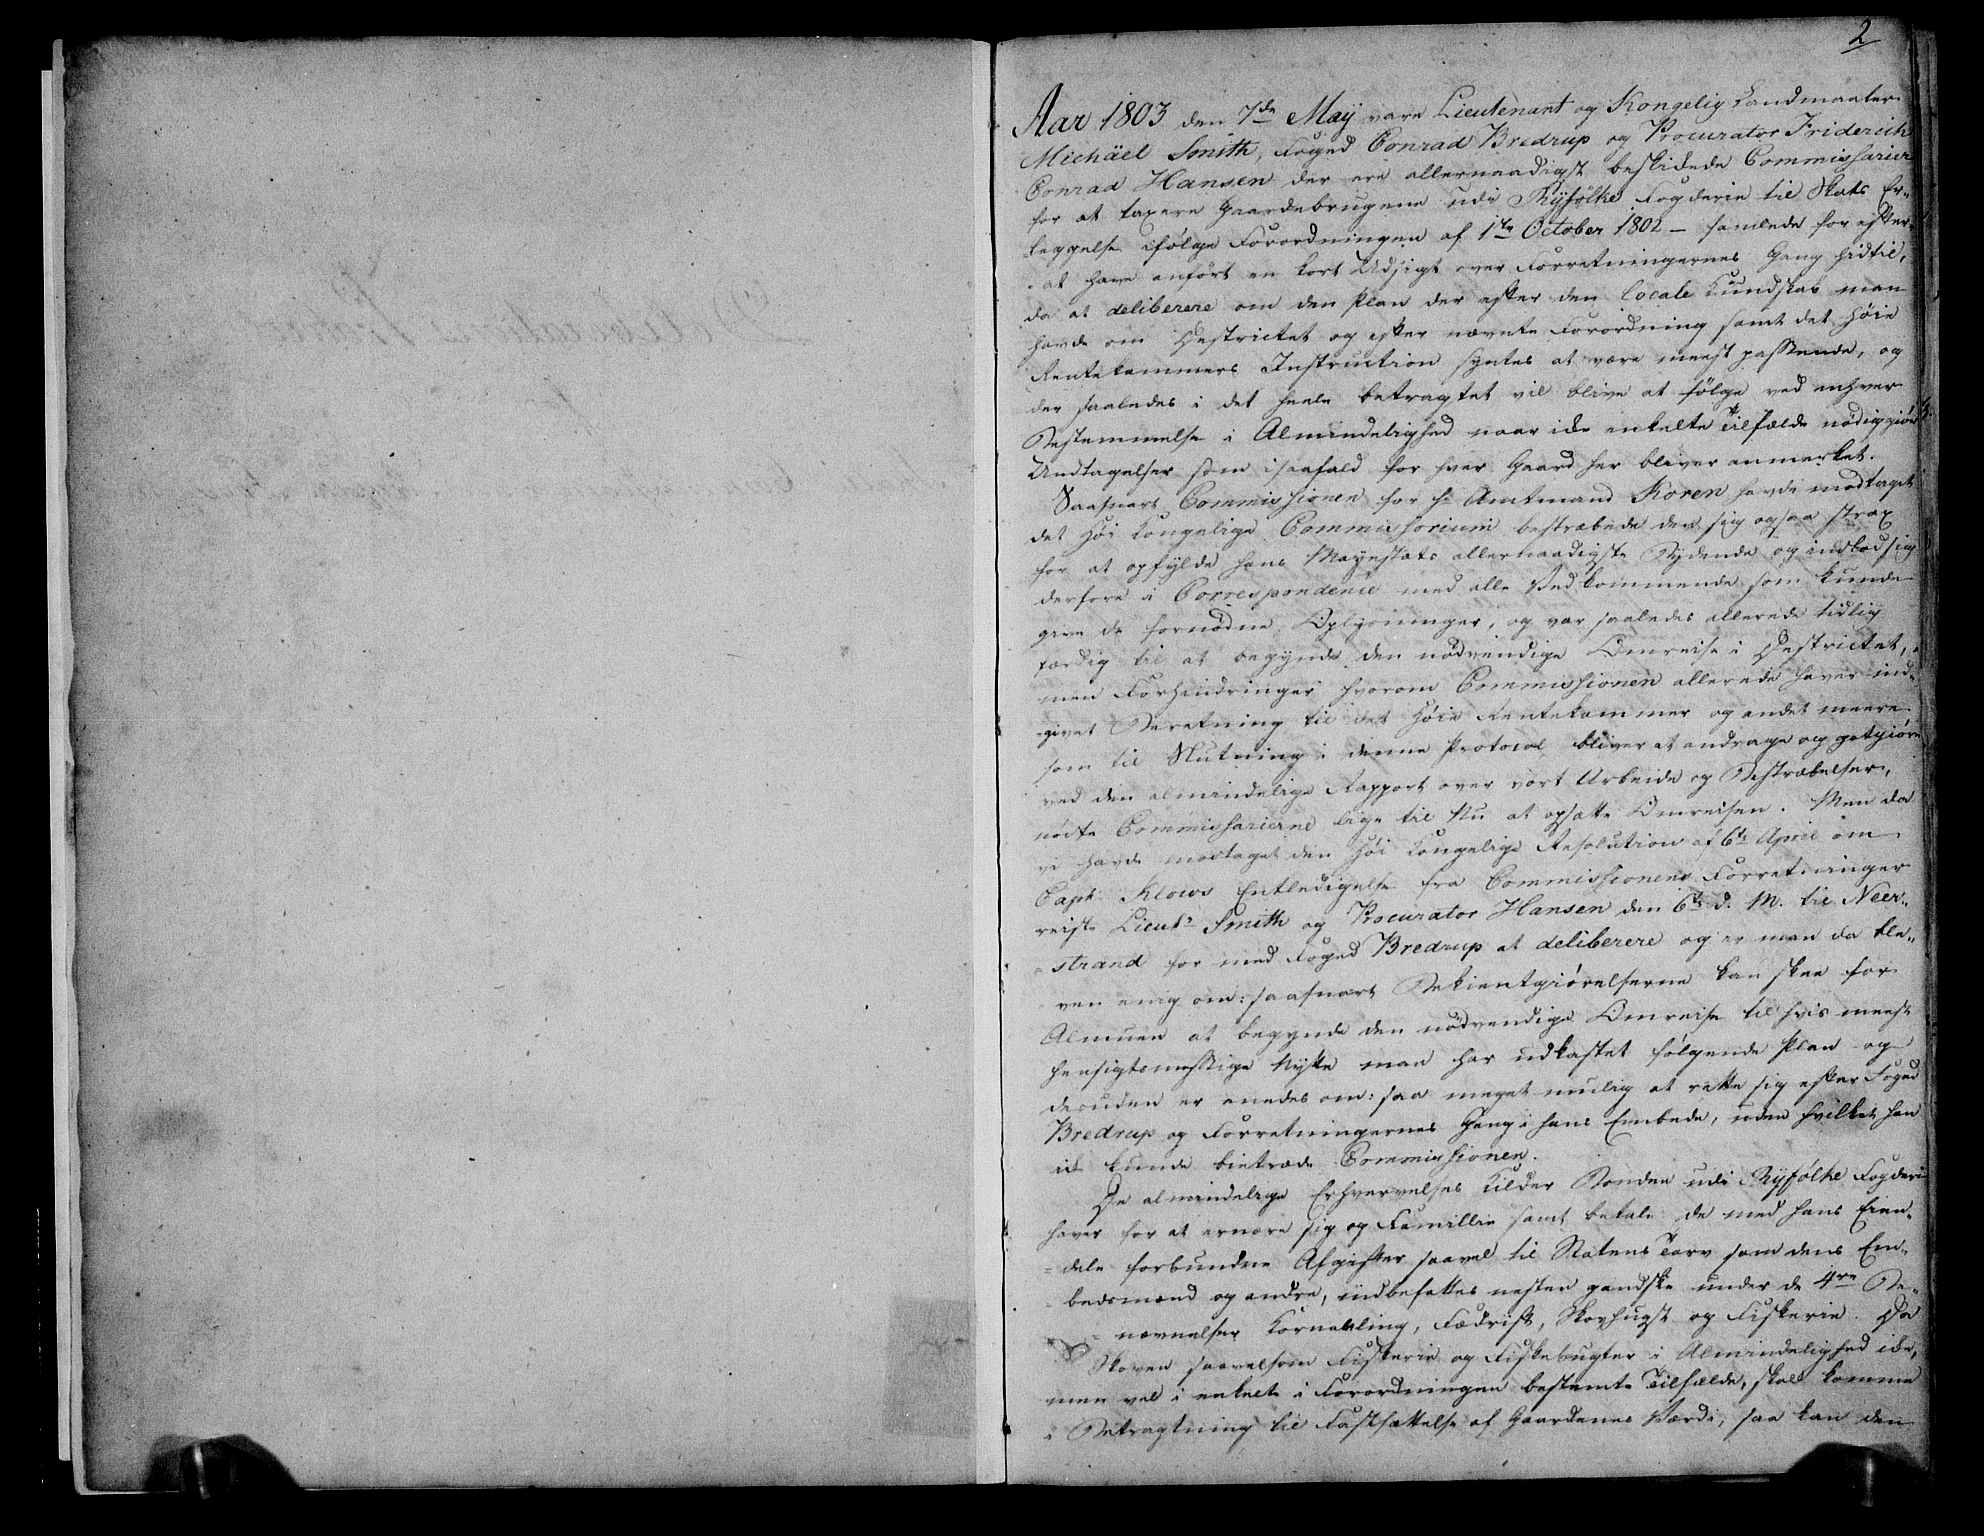 2
Aar 1803 den 7de May vare Lieutenant og Kongelig Landmaaler
Michäel Smith, Foged Conrad Bredrup og Procurator Friderich
Conrad Hansen der ere allernaadigst beskikede Commissarier
for at taxere Gaardebrugene udi Ryfölke Fogderie til Skats Er-
leggelse ifølge Forordningen af 1te October 1802 – samlede for efter
at have anført en kort Udsigt over Forretningernes Gang hidtil,
da at deliberere om den Plan der efter den locale Kundskab man
havde om Destrictet og efter nævnte Forordning samt det Høie
Rentekammers Instruction syntes at være meest passende, og
der saaledes i det heele betragtet vil blive at følge ved enhver
Bestemmelse i Almindelighed naar ikke enkelte Tilfælde nødiggiør
Undtagelser som isaafald for hver Gaard her bliver anmerket.
Saasnart Commissionen for Hr Amtmand Koren havde modtaget
det Høi Kongelige Commissorium bestræbede den sig ogsaa strax
for at opfylde Hans Mayestæts allernaadigste Bydende og indlod sig
derfore i Correspondence med alle Vedkommende som kunde
give de fornødne Oplysninger, og var saaledes allerede tidlig
færdig til at begynde den nødvendige Omreise i Destrictet,
men Forhindringer hvorom Commissionen allerede haver ind-
givet Beretning til det Høie Rentekammer og andet meere
som til Slutning i denne Protocol bliver at andrage og godtgiøre
ved den almindelige Rapport over vort Arbeide og Bestræbelser,
nødte Commissarierne lige til Nu at opsætte Omreisen. Men da
vi havde modtaget den Høi Kongelige Resolution af 6te April om
Capt. Klows Entledigelse fra Commissionens Forretninger
reiste Lieutn Smith og Procurator Hansen den 6te d. M. til Neer-
strand for med Foged Bredrup at deliberere og er man da ble-
ven enig om: saasnart Bekientgiørelserne kan skee for
Almuen at begynde den nødvendige Omreise til hvis meest
hensigtsmessige Nytte man har udkastet følgende Plan og
desuden er eenedes om: saa meget mulig at rette sig efter Foged
Bredrup og Forretningernes Gang i hans Embede, uden hvilket han
ik kunde bietræde Commissionen.
De almindelige Erhvervelses Kilder Bonden udi Ryfölke Fogderi
haver for at ernære sig og Famillie samt betale de med hans Eien-
dele forbundne Afgifter saavel til Statens Tarv som dens Em-
bedsmænd og andre, indbefattes nesten gandske under de 4re Be-
nævnelser Kornavling, Fædrift, Skovhugst og Fiskerie. Da
Skoven saavelsom Fiskerie og Fiskebugter i Almindelighed ikke,
men vel i enkelte i Forordningen bestemte Tilfælde, skal komme
i Betragtning til Fastsættelse af Gaardenes Værdi, saa kan den